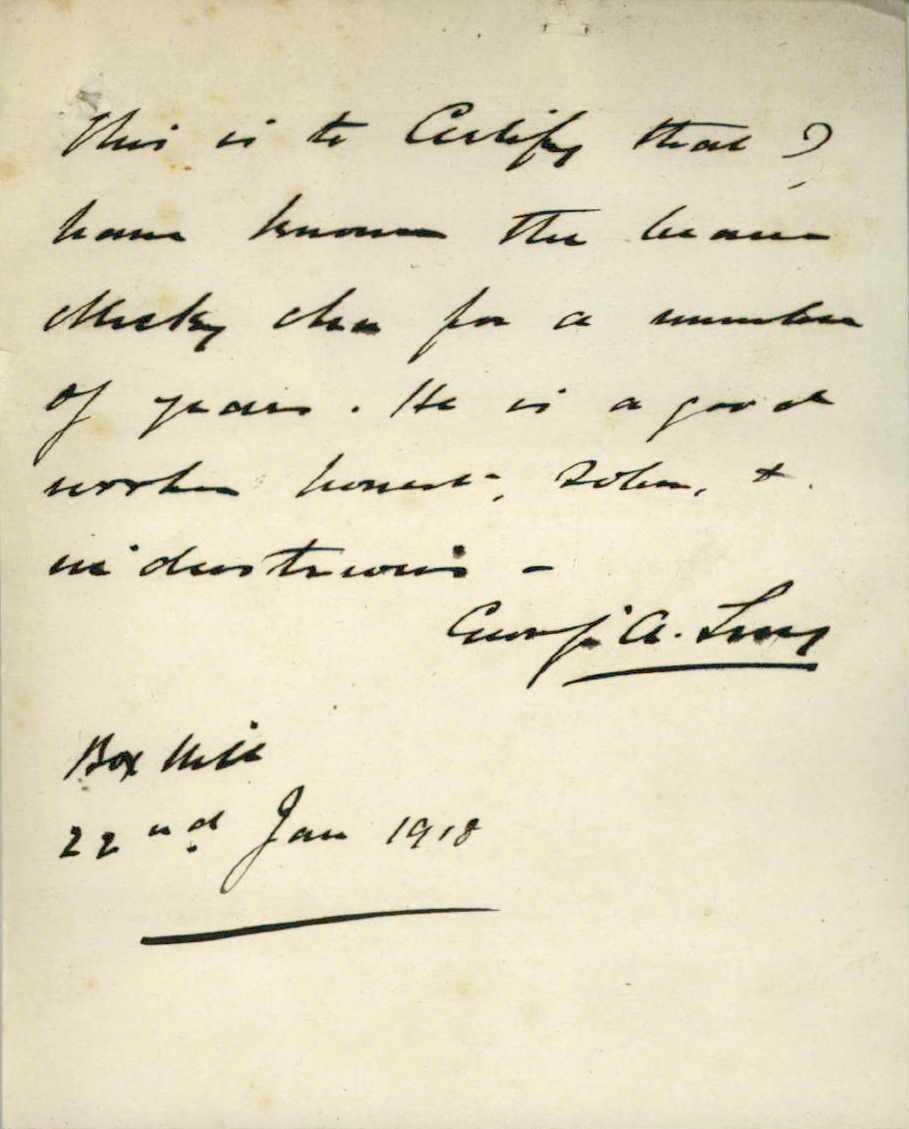 This is to Certify that I
have known the bearer
for a number
of years. He is a good
worker honest, sober, &
industrious -
George A.
Box Hill
22nd Jan 1918